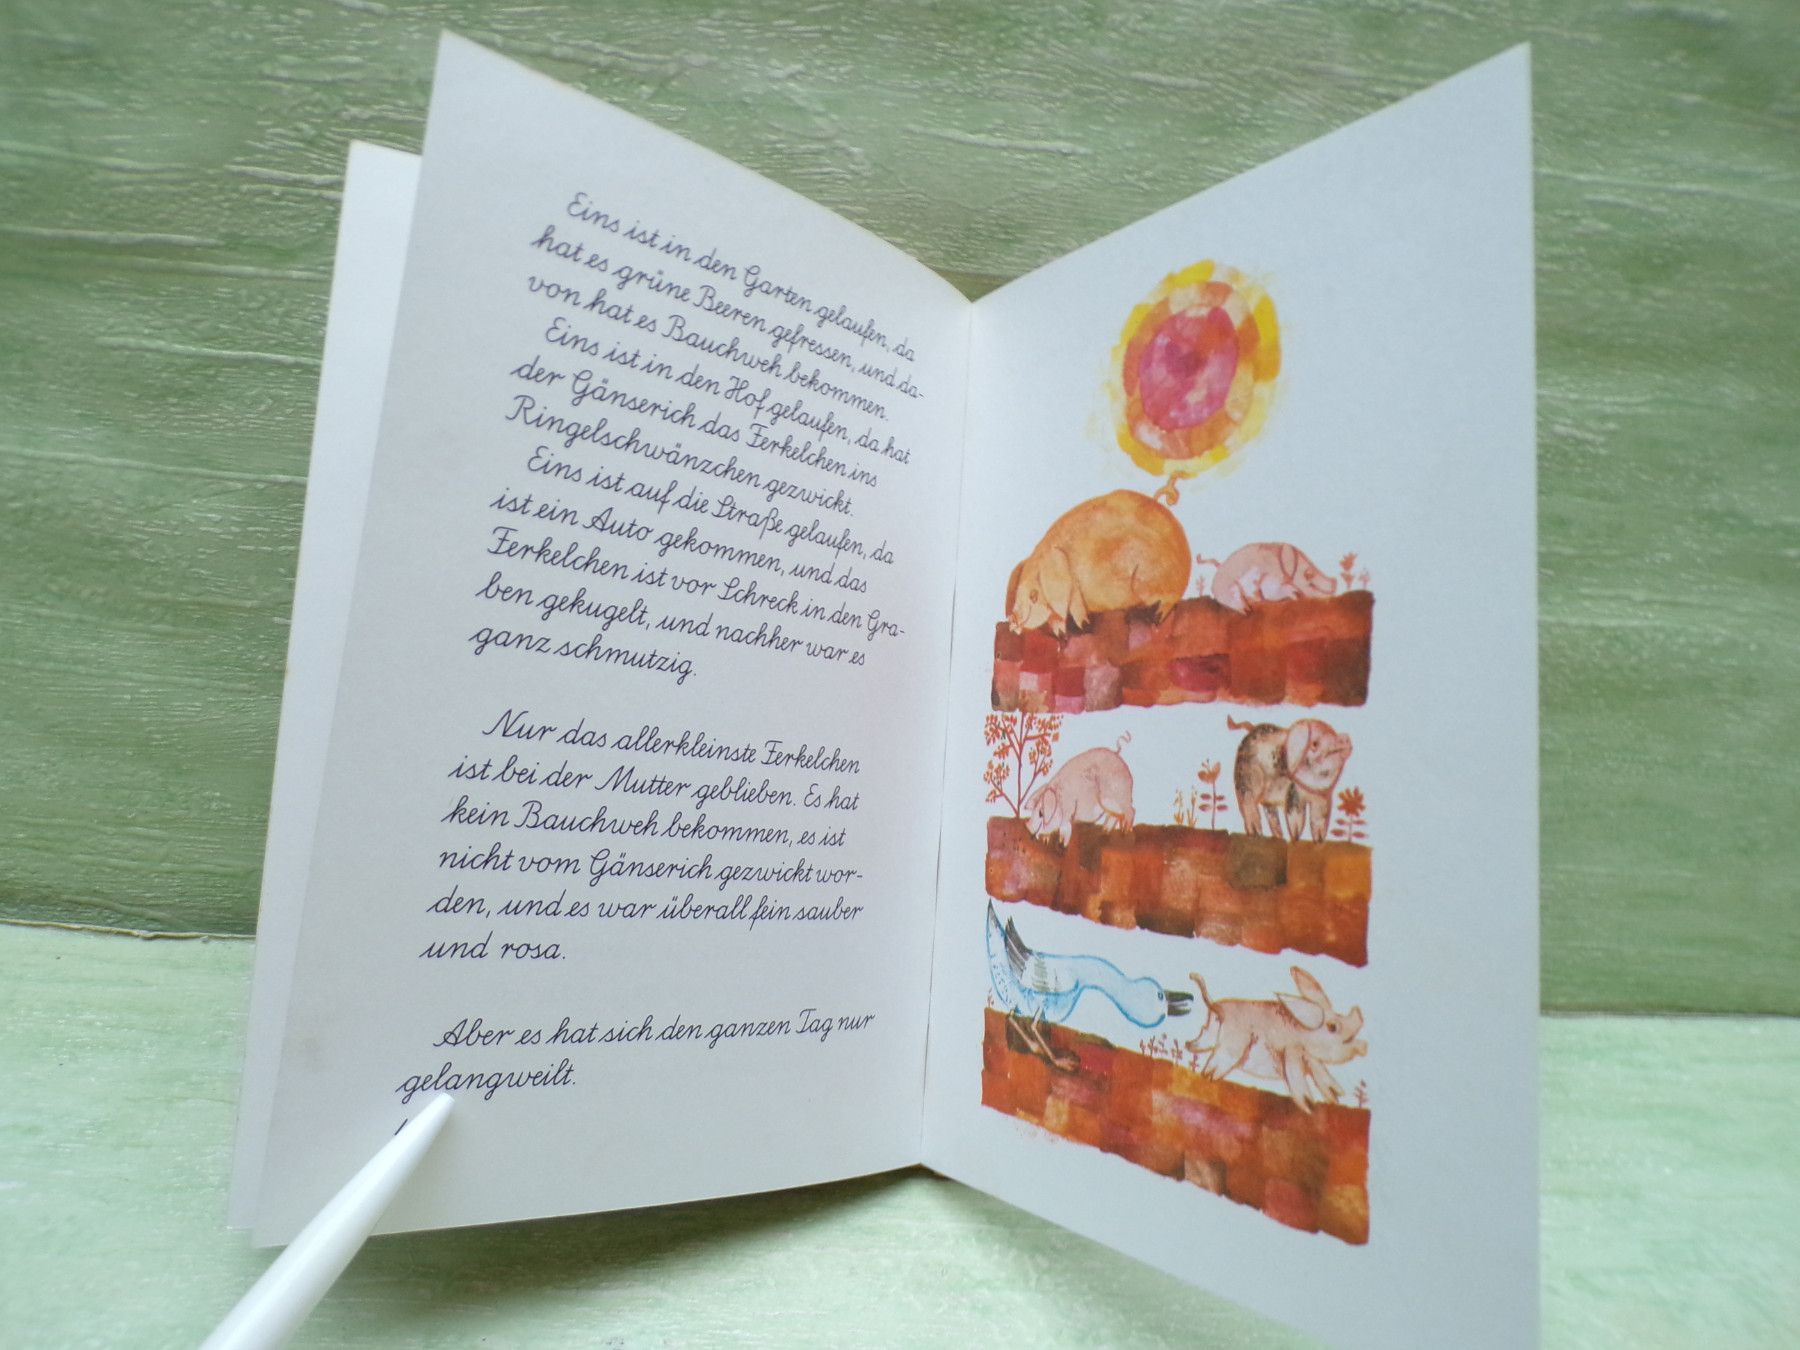 Eins ist in den Garten gelaufen, da
hat es grüne Beeren gefressen, und da-
von hat es Bauchweh bekommen.
Eins ist in den Hof gelaufen, da hat
der Gänserich das Ferkelchen ins
Ringelschwänzchen gezwickt.
Eins ist auf die Straße gelaufen, da
ist ein Auto gekommen, und das
Ferkelchen ist vor Schreck in den Gra-
ben gekugelt, und nachher war es
ganz schmutzig.
Nur das allerkleinste Ferkelchen
ist bei der Mutter geblieben. Es hat
kein Bauchweh bekommen, es ist
nicht vom Gänserich gezwickt wor-
den, und es war überall fein sauber
und rosa.
Aber es hat sich den ganzen Tag nur
gelangweilt.